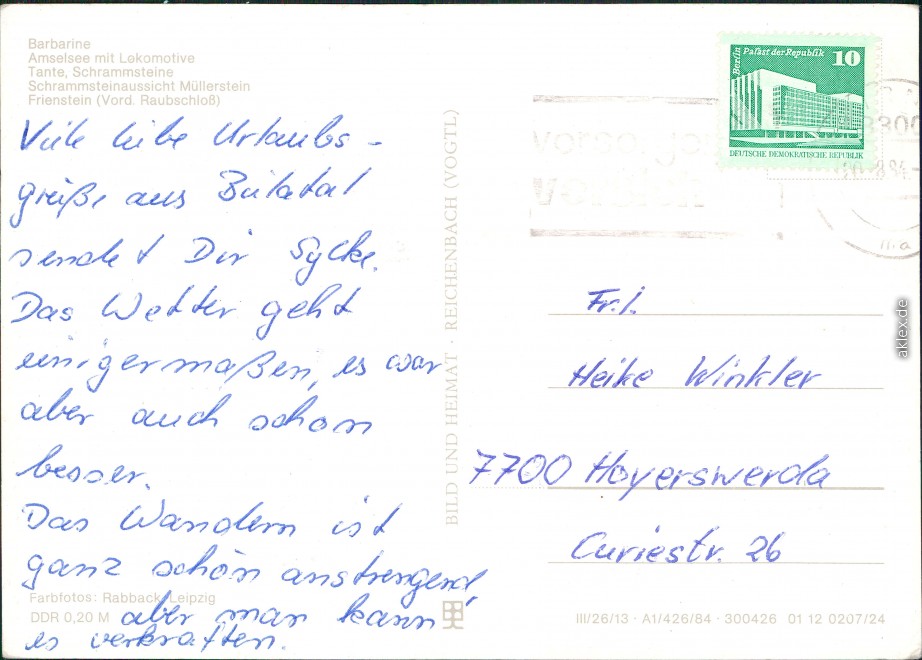 Barbarine
Amselsee mit Lokomotive
Tante, Schrammsteine
Schrammsteinaussicht Müllerstein
Frienstein (Vord. Raubschloß)
Viele liebe Urlaubs-
grüße aus Bielatal
sendet Dir Sylke.
Das Wetter geht
einigermaßen, es war
aber auch schon
besser.
Das Wandern ist
ganz schön anstrengend,
aber man kann
es verkraften.
Farbfotos: Rabback, Leipzig
DDR 0,20 M
BILD UND HEIMAT · REICHENBACH (VOGTL)
Berlin Palast der Republik 10
DEUTSCHE DEMOKRATISCHE REPUBLIK
Frl.
Heike Winkler
7700 Hoyerswerda
Curiestr. 26
III/26/13 · A1/426/84 · 300426 01 12 0207/24
aklex.de